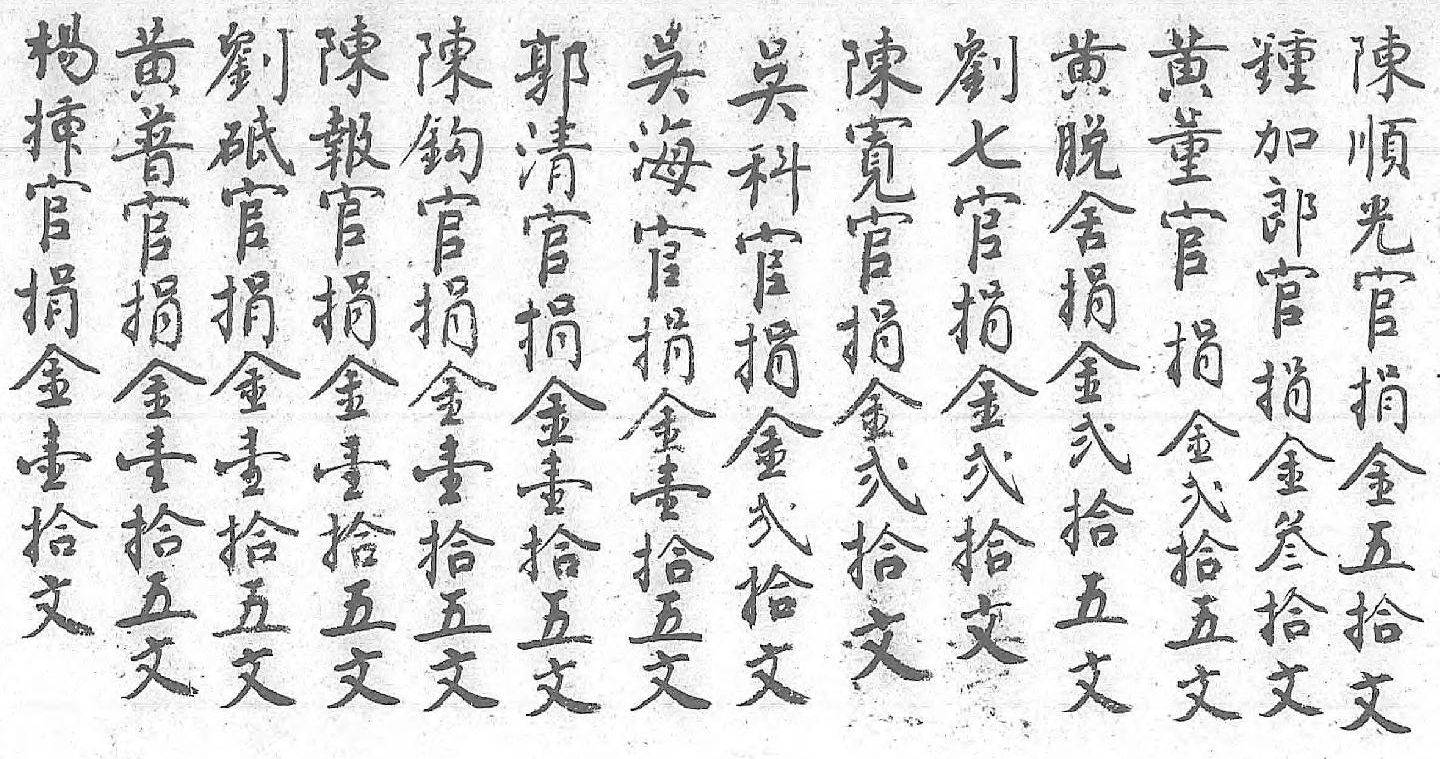 陳順光官捐金五拾文
鍾加郎官捐金叁拾文
黄董官捐金弍拾五文
黄脱舍捐金弍拾五文
劉七官捐金弍拾文
陳寬官捐金弍拾文
吳科官捐金弍拾文
吳海官捐金壹拾五文
郭清官捐金壹拾五文
陳鈎官捐金壹拾五文
陳報官捐金壹拾五文
劉砥官捐金壹拾五文
黃普官捐金壹拾五文
楊揀官捐金壹拾文